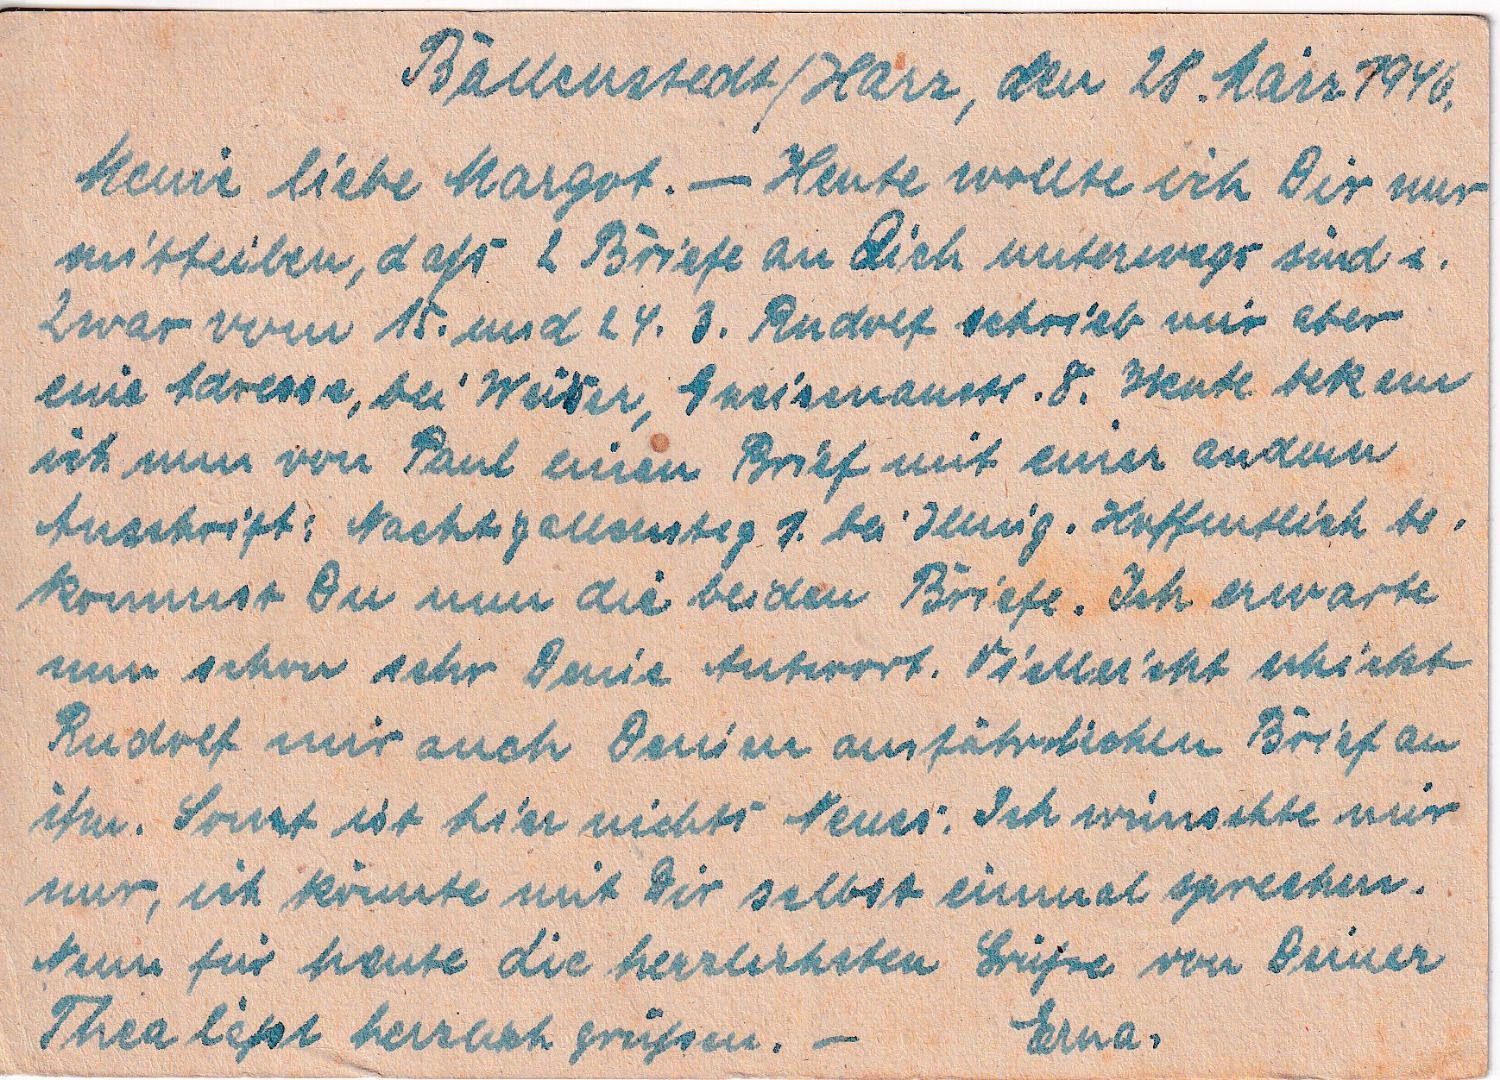 Ballenstedt/Harz, den 28. März 1946.
Meine liebe Margot. — Heute wollte ich Dir nur
mitteilen, daß 2 Briefe an Dich unterwegs sind u.
zwar vom 15. und 24. 3. Rudolf schrieb mir aber
eine Adresse, bei Gneisenaustr. 8. Heute bekam
ich nun von Paul einen Brief mit einer andern
Anschrift: Nachtigallensteg 1. bei Illnig. Hoffentlich be-
kommst Du nun die beiden Briefe. Ich erwarte
nun schon sehr Deine Antwort. Vielleicht schickt
Rudolf mir auch Deinen ausführlichen Brief an
ihn. Sonst ist hier nichts Neues. Ich wünschte mir
nur, ich könnte mit Dir selbst einmal sprechen.
Nun für heute die herzlichsten Grüße von Deiner
Thea läßt herzlich grüßen. — Erna.